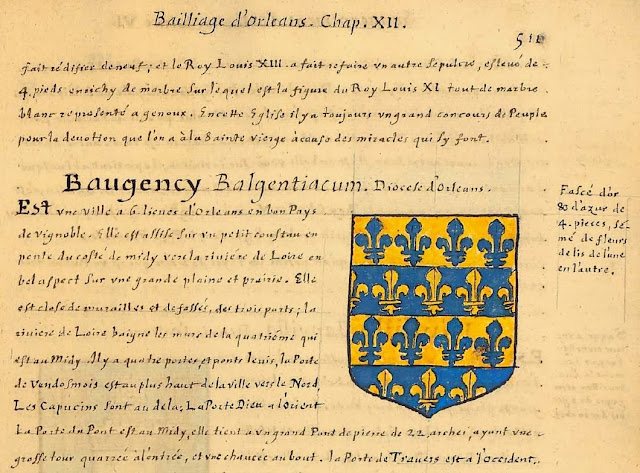 Bailliage d'Orleans. Chap. XII.
511
fait rédifier de neuf; et le Roy Louis XIII. a fait refaire un autre sepulcre, eslevé de
4. pieds enrichy de marbre sur lequel est la figure du Roy Louis XI tout de marbre
blanc representé a genoux. En cette Eglise il y a toujours un grand concours de Peuple
pour la devotion que l'on a à la Sainte vierge à cause des miracles qui s'y font.
Baugency Balgentiacum. Diocese d'Orleans.
Est une ville a 6. lieues d'Orleans en bon Pays
de vignoble. Elle est assise sur un petit coustau en
pente du costé de midy vers la riviere de Loire en
bel aspect sur une grande plaine et prairie. Elle
est close de murailles et de fossés, des trois parts; la
riviere de Loire baigne les murs de la quatriéme qui
est au Midy. Il y a quatre portes, et ponts levis, la Porte
de Vendosmois est au plus haut de la ville vers le Nord,
Les Capucins sont au dela; La Porte Dieu a l'orient
La Porte du Pont est au Midy, elle tient a un grand Pont de pierre de 22. arches, ayant une
grosse tour quarrée a l'entrée, et une chaucée au bout. la Porte de Travers est a l'occident.
Fascé d'or
& d'azur de
4. pieces, se-
mé de fleurs
de lis de l'une
en l'autre.